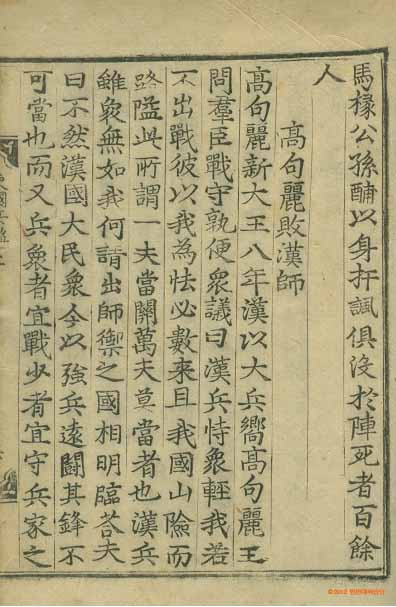 馬椽公孫酺以身扞諷俱沒於陣死者百餘
人
高句麗敗漢師
高句麗新大王八年漢以大兵嚮高句麗王
問羣臣戰守孰便衆議曰漢兵恃衆輕我若
不出戰彼以我為怯必數來且我國山險而
路隘此所謂一夫當關萬夫莫當者也漢兵
雖衆無如我何請出師禦之國相明臨荅夫
曰不然漢國大民衆今以強兵遠鬪其鋒不
可當也而又兵衆者宜戰少者宜守兵家之